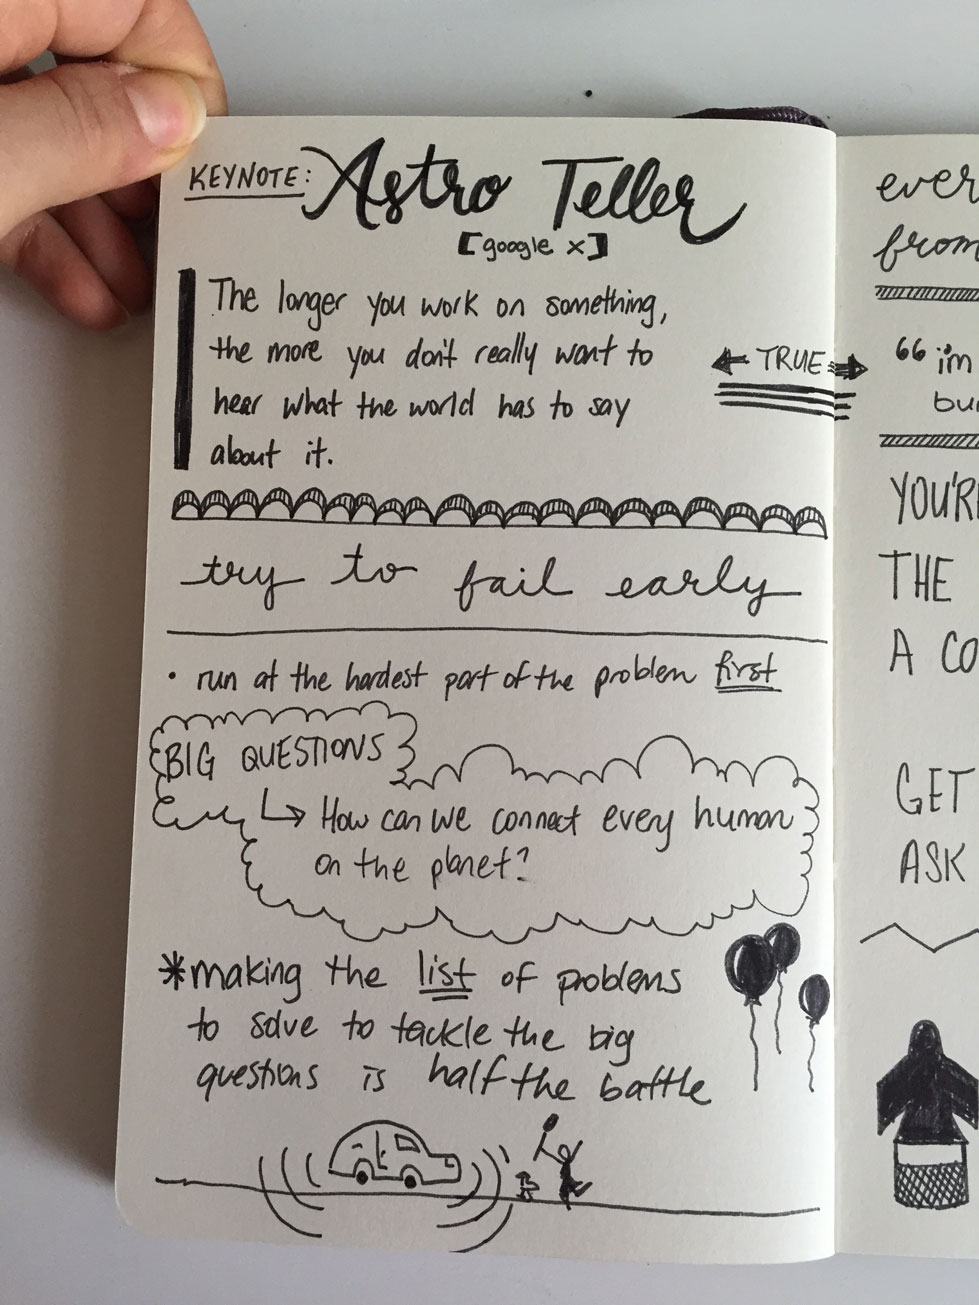 KEYNOTE: Astro Teller
[google x]
The longer you work on something,
the more you don't really want to
hear what the world has to say
about it.
TRUE
try to fail early
• run at the hardest part of the problem first
BIG QUESTIONS
↳ How can we connect every human
on the planet?
*making the list of problems
to solve to tackle the big
questions is half the battle
ever
from
“i'm
YOU'R
THE
A CO
GET
ASK